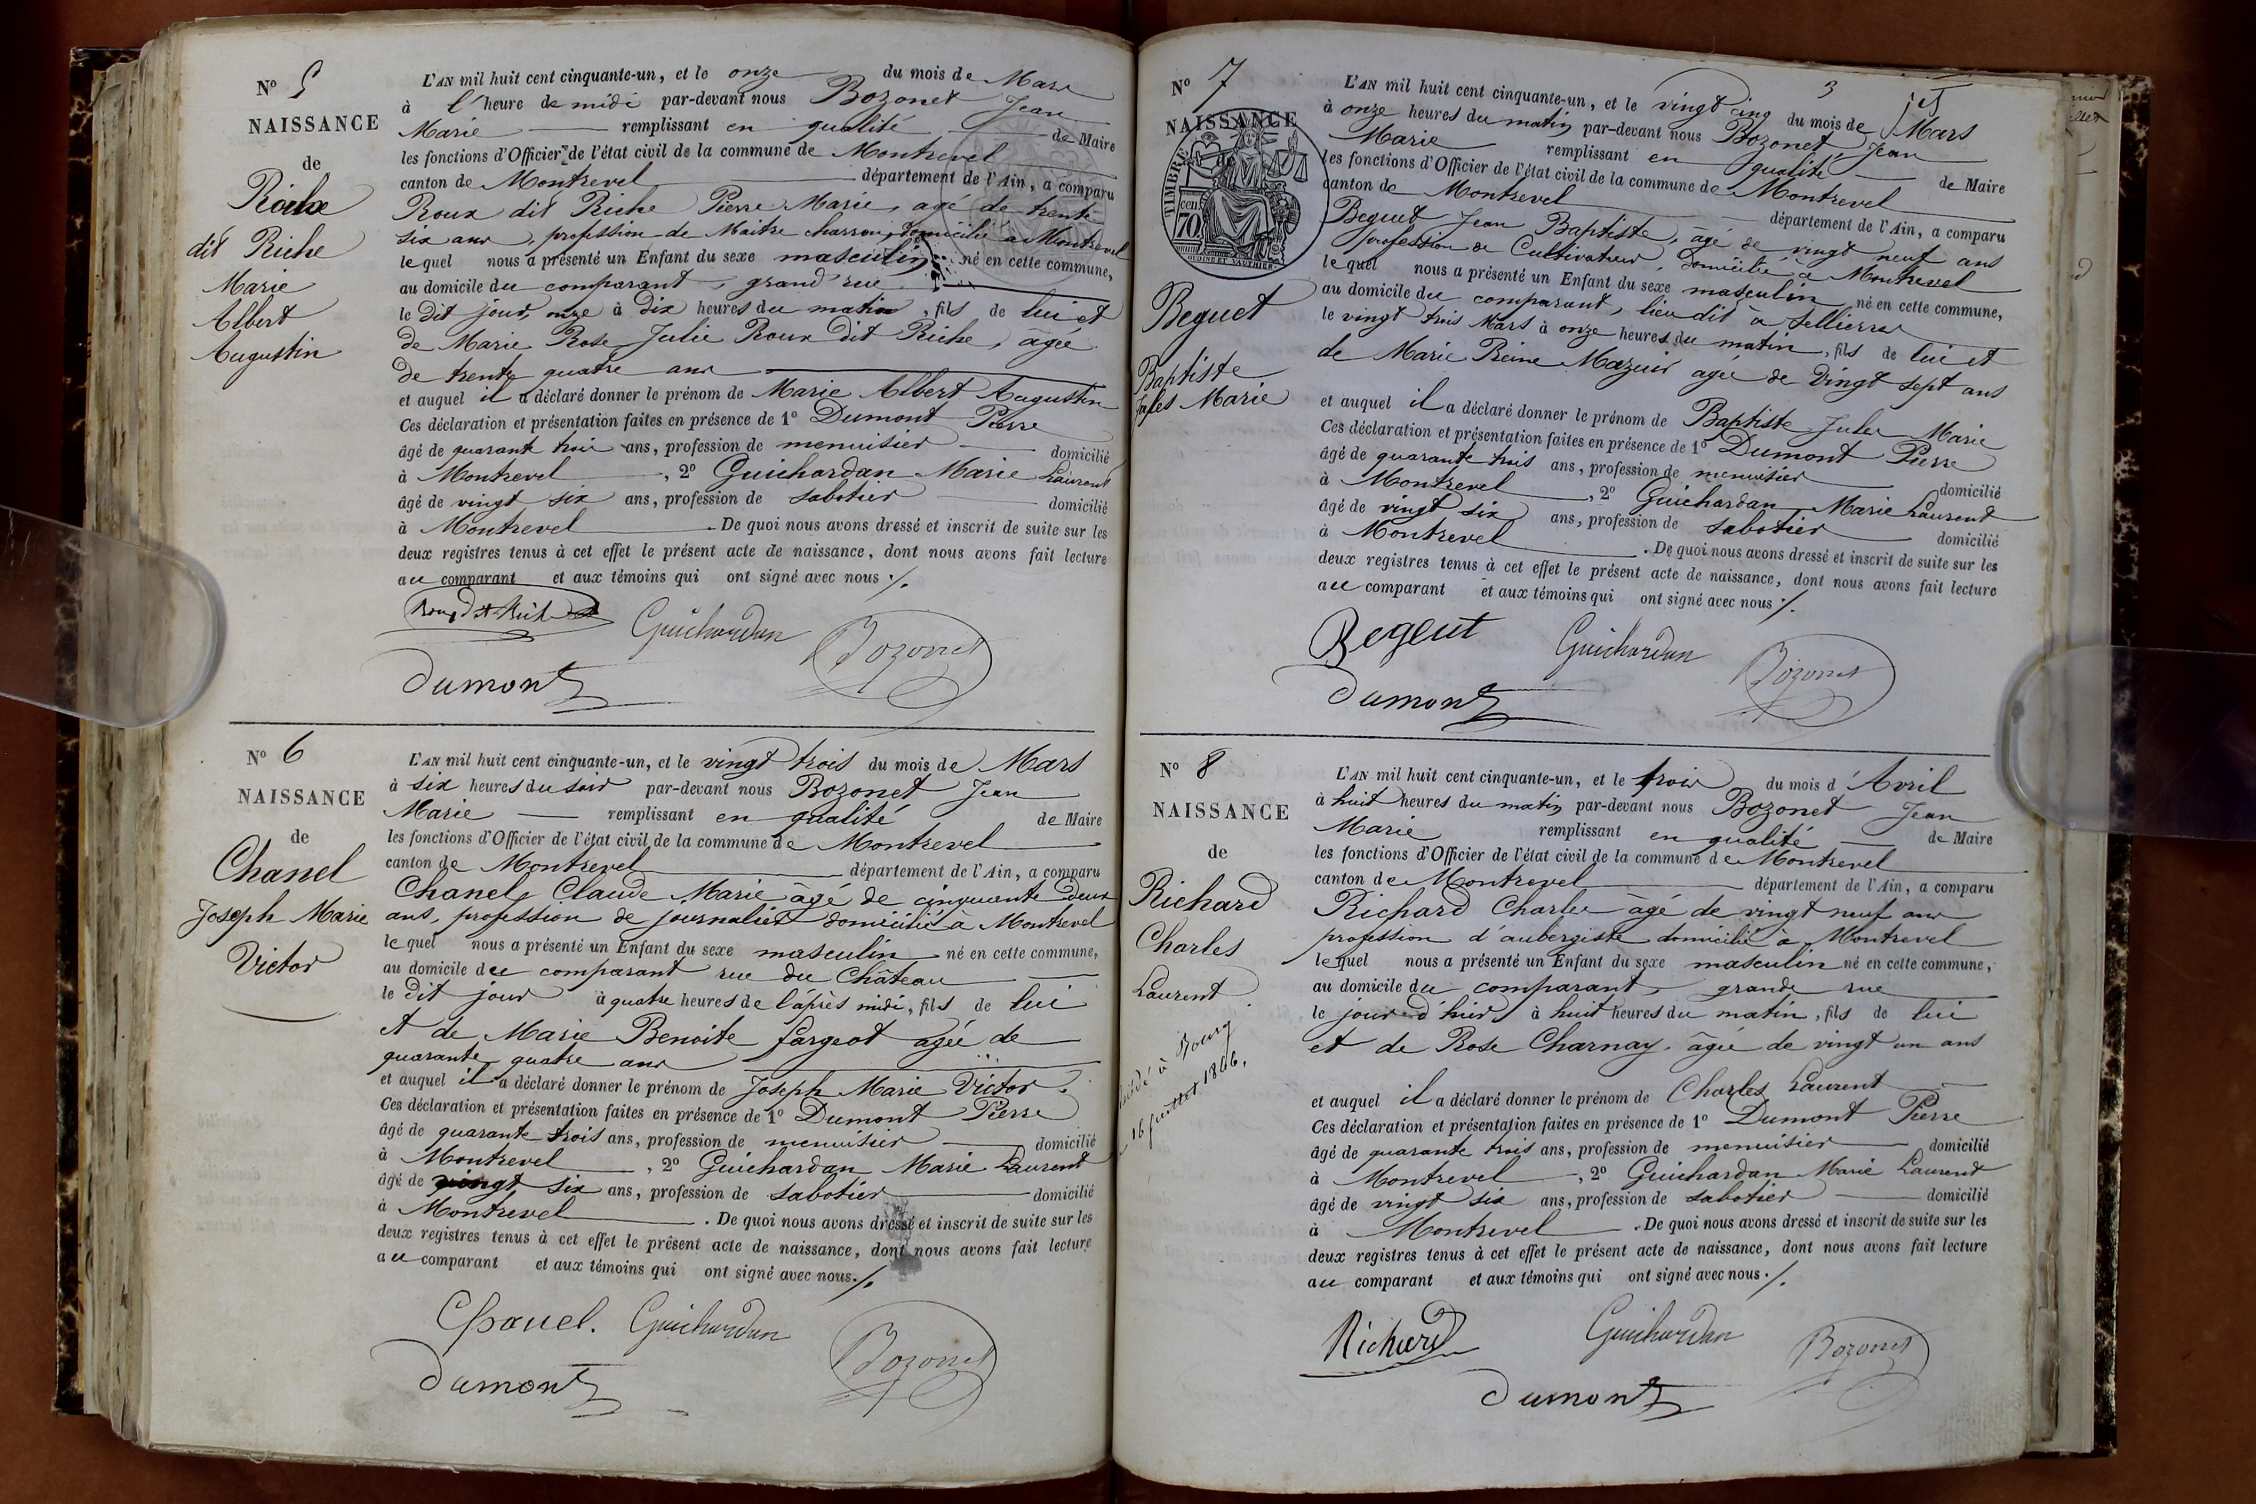 N° 5
NAISSANCE
de
Roux
dit Riche
Marie
Albert
Augustin
L'AN mil huit cent cinquante-un, et le onze du mois de Mars
à l'heure de midi par-devant nous Bozonet Jean
Marie remplissant en qualité de Maire
les fonctions d'Officier de l'état civil de la commune de Montrevel
canton de Montrevel département de l'Ain, a comparu
Roux dit Riche Pierre Marie, agé de trente
six ans, profession de Maitre charron, domicilié à Montrevel
lequel nous a présenté un Enfant du sexe masculin né en cette commune,
au domicile du comparant, grand'rue
le dit jour, onze à Dix heures du matin, fils de lui et
de Marie Rose Julie Roux dit Riche, âgée
de trente quatre ans
et auquel il a déclaré donner le prénom de Marie Albert Augustin
Ces déclaration et présentation faites en présence de 1° Dumont Pierre
âgé de quarant trois ans, profession de menuisier domicilié
à Montrevel, 2° Guichardan Marie Laurent
âgé de vingt six ans, profession de sabotier domicilié
à Montrevel. De quoi nous avons dressé et inscrit de suite sur les
deux registres tenus à cet effet le présent acte de naissance, dont nous avons fait lecture
au comparant et aux témoins qui ont signé avec nous ./.
Roux dit Riche
Guichardan
Bozonet
Dumont
N° 6
NAISSANCE
de
Chanel
Joseph Marie
Victor
L'AN mil huit cent cinquante-un, et le vingt trois du mois de Mars
à six heures du soir par-devant nous Bozonet Jean
Marie remplissant en qualité de Maire
les fonctions d'Officier de l'état civil de la commune de Montrevel
canton de Montrevel département de l'Ain, a comparu
Chanel Claude Marie âgé de cinquante deux
ans, profession de journalier domicilié à Montrevel
lequel nous a présenté un Enfant du sexe masculin né en cette commune,
au domicile du comparant rue du Château
le dit jour à quatre heures de l'après midi, fils de lui
et de Marie Benoite fargeot agée de
quarante quatre ans
et auquel il a déclaré donner le prénom de Joseph Marie Victor.
Ces déclaration et présentation faites en présence de 1° Dumont Pierre
âgé de quarante trois ans, profession de menuisier domicilié
à Montrevel, 2° Guichardan Marie Laurent
âgé de vingt six ans, profession de sabotier domicilié
à Montrevel. De quoi nous avons dressé et inscrit de suite sur les
deux registres tenus à cet effet le présent acte de naissance, dont nous avons fait lecture
au comparant et aux témoins qui ont signé avec nous ./.
Chanel. Guichardan
Bozonet
Dumont
3
N° 7
NAISSANCE
TIMBRE
70 cen.
OUDINÉ ET VAUTHIER.
Beguet
Baptiste
Jules Marie
L'AN mil huit cent cinquante-un, et le vingt cinq du mois de Mars
à onze heures du matin par-devant nous Bozonet Jean
Marie remplissant en qualité de Maire
les fonctions d'Officier de l'état civil de la commune de Montrevel
canton de Montrevel département de l'Ain, a comparu
Beguet Jean Baptiste, âgé de vingt neuf ans
profession de Cultivateur, domicilié à Montrevel
lequel nous a présenté un Enfant du sexe masculin né en cette commune,
au domicile du comparant, lieu dit à
le vingt trois Mars à onze heures du matin, fils de lui et
de Marie Reine Mazuir agée de Vingt sept ans
et auquel il a déclaré donner le prénom de Baptiste Jules Marie
Ces déclaration et présentation faites en présence de 1° Dumont Pierre
âgé de quarante trois ans, profession de menuisier domicilié
à Montrevel, 2° Guichardan Marie Laurent
âgé de vingt six ans, profession de sabotier domicilié
à Montrevel. De quoi nous avons dressé et inscrit de suite sur les
deux registres tenus à cet effet le présent acte de naissance, dont nous avons fait lecture
au comparant et aux témoins qui ont signé avec nous ./.
Begeut
Guichardan
Bozonet
Dumont
N° 8
NAISSANCE
de
Richard
Charles
Laurent
à Bourg
16 juillet
L'AN mil huit cent cinquante-un, et le trois du mois d'Avril
à huit heures du matin par-devant nous Bozonet Jean
Marie remplissant en qualité de Maire
les fonctions d'Officier de l'état civil de la commune de Montrevel
canton de Montrevel département de l'Ain, a comparu
Richard Charles âgé de vingt neuf ans
profession d'aubergiste domicilié à Montrevel
lequel nous a présenté un Enfant du sexe masculin né en cette commune,
au domicile du comparant, grande rue
le jour d'hier à huit heures du matin, fils de lui
et de Rose Charnay. âgée de vingt un ans
et auquel il a déclaré donner le prénom de Charles Laurent
Ces déclaration et présentation faites en présence de 1° Dumont Pierre
âgé de quarante trois ans, profession de menuisier domicilié
à Montrevel, 2° Guichardan Marie Laurent
âgé de vingt six ans, profession de sabotier domicilié
à Montrevel. De quoi nous avons dressé et inscrit de suite sur les
deux registres tenus à cet effet le présent acte de naissance, dont nous avons fait lecture
au comparant et aux témoins qui ont signé avec nous ./.
Richard
Guichardan
Bozonet
Dumont